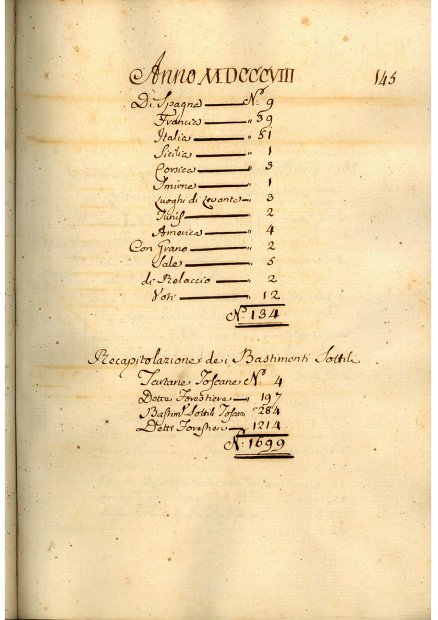 Anno MDCCCVIII 145
Di Spagna N.º 9
Francia " 39
Italia " 51
Sicilia " 1
Corsica " 3
Smirne " 1
Luoghi di Levante " 3
Tunis " 2
America " 4
Con Grano " 2
Sale " 5
di Rilascio " 2
Voti " 12
N.º 134
Recapitolazione dei Bastimenti Sottili
Tartane Toscane N.º 4
Dette Forestiere " 197
Bastim.ti Sottili Toscani " 284
Detti Forestieri " 1214
N.º 1699